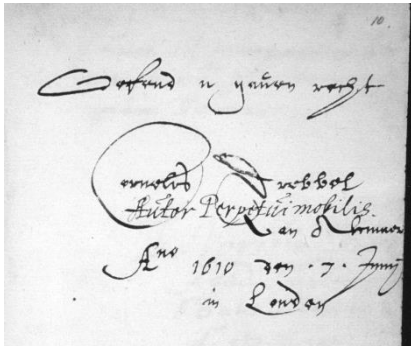 10.
Oeffend u gauen recht
Cornelis Drebbel
Autor Perpetui mobilis.
Van Alkmaer
Ano 1610 den · 7 · Junij
in Londen